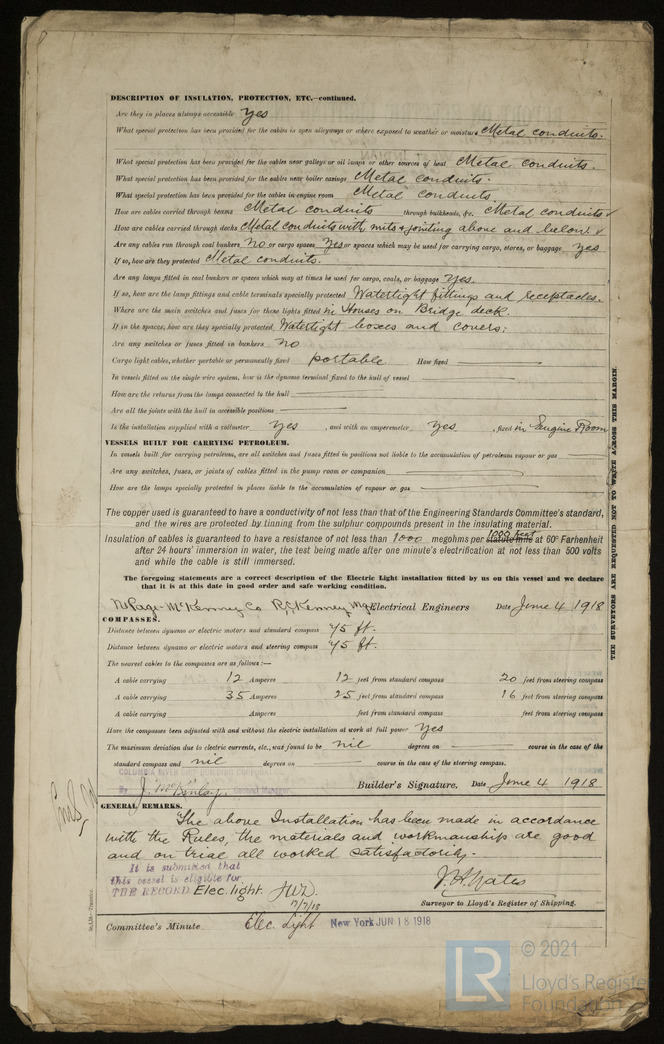 DESCRIPTION OF INSULATION, PROTECTION, ETC.—continued.
Are they in places always accessible Yes
What special protection has been provided for the cables in open alleyways or where exposed to weather or moisture Metal conduits.
What special protection has been provided for the cables near galleys or oil lamps or other sources of heat Metal conduits.
What special protection has been provided for the cables near boiler casings Metal conduits.
What special protection has been provided for the cables in engine room Metal conduits
How are cables carried through beams Metal conduits through bulkheads, &c. Metal conduits
How are cables carried through decks Metal conduits with nuts & jointing above and below
Are any cables run through coal bunkers No or cargo spaces Yes or spaces which may be used for carrying cargo, stores, or baggage yes
If so, how are they protected Metal conduits.
Are any lamps fitted in coal bunkers or spaces which may at times be used for cargo, coals, or baggage Yes.
If so, how are the lamp fittings and cable terminals specially protected Watertight fittings and receptacles.
Where are the main switches and fuses for these lights fitted in Houses on Bridge deck.
If in the spaces, how are they specially protected Watertight boxes and covers.
Are any switches or fuses fitted in bunkers No
Cargo light cables, whether portable or permanently fixed portable How fixed
In vessels fitted on the single wire system, how is the dynamo terminal fixed to the hull of vessel
How are the returns from the lamps connected to the hull
Are all the joints with the hull in accessible positions
Is the installation supplied with a voltmeter Yes , and with an amperemeter Yes , fixed in Engine Room
VESSELS BUILT FOR CARRYING PETROLEUM.
In vessels built for carrying petroleum, are all switches and fuses fitted in positions not liable to the accumulation of petroleum vapour or gas
Are any switches, fuses, or joints of cables fitted in the pump room or companion
How are the lamps specially protected in places liable to the accumulation of vapour or gas
The copper used is guaranteed to have a conductivity of not less than that of the Engineering Standards Committee's standard,
and the wires are protected by tinning from the sulphur compounds present in the insulating material.
Insulation of cables is guaranteed to have a resistance of not less than 1000 megohms per statute mile 1000 feet at 60° Farhenheit
after 24 hours' immersion in water, the test being made after one minute's electrification at not less than 500 volts
and while the cable is still immersed.
The foregoing statements are a correct description of the Electric Light installation fitted by us on this vessel and we declare
that it is at this date in good order and safe working condition.
NePage-McKenney Co R.C. Kenney Mgr Electrical Engineers Date June 4 1918
COMPASSES.
Distance between dynamo or electric motors and standard compass 45 ft.
Distance between dynamo or electric motors and steering compass 45 ft.
The nearest cables to the compasses are as follows:—
A cable carrying 12 Amperes 12 feet from standard compass 20 feet from steering compass
A cable carrying 35 Amperes 25 feet from standard compass 16 feet from steering compass
A cable carrying Amperes feet from standard compass feet from steering compass
Have the compasses been adjusted with and without the electric installation at work at full power Yes
The maximum deviation due to electric currents, etc., was found to be nil degrees on course in the case of the
standard compass and nil degrees on course in the case of the steering compass.
COLUMBIA RIVER SHIPBUILDING CORPORATION
By General Manager. Builder's Signature. Date June 4 1918
GENERAL REMARKS.
The above Installation has been made in accordance
with the Rules, the materials and workmanship are good
and on trial all worked satisfactorily.
It is submitted that
this vessel is eligible for
THE RECORD Elec. light. JWD
17/7/18
Surveyor to Lloyd's Register of Shipping.
Committee's Minute Elec. Light New York JUN 18 1918
THE SURVEYORS ARE REQUESTED NOT TO WRITE ACROSS THIS MARGIN.
© 2021
Lloyd's Register
Foundation
LR